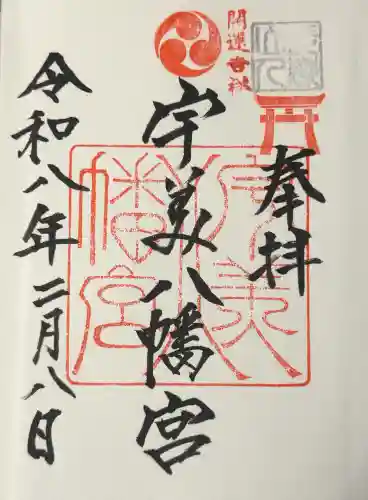 奉拝
開運古社
宇美八幡宮
宇美八幡宮
令和八年二月八日